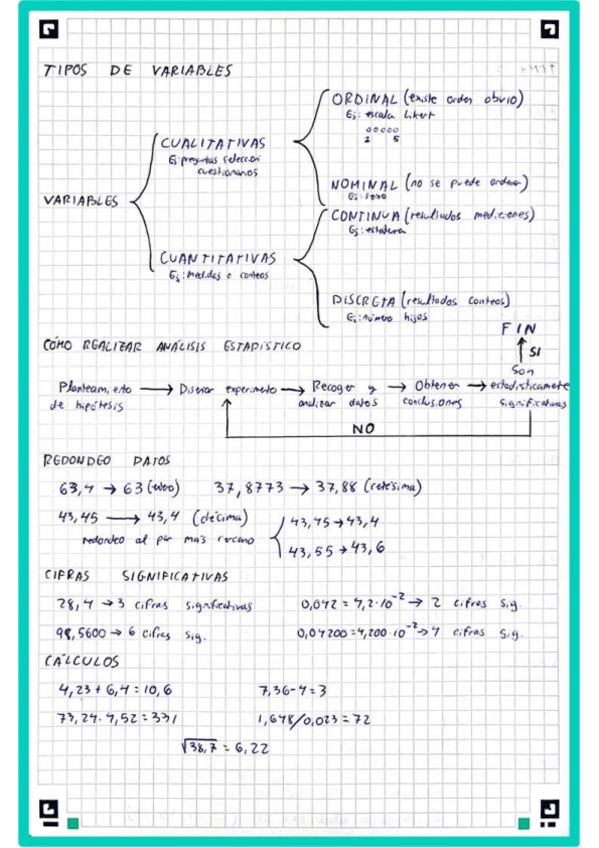 TIPOS DE VARIABLES
VARIABLES
CUALITATIVAS
Ej: preguntas selección
cuestionarios
ORDINAL (existe orden obvio)
Ej: escala Likert
1 5
NOMINAL (no se puede ordenar)
Ej: sexo
CUANTITATIVAS
Ej: medidas o conteos
CONTINUA (resultados mediciones)
Ej: estatura
DISCRETA (resultados conteos)
Ej: número hijos
CÓMO REALIZAR ANÁLISIS ESTADÍSTICO
Planteamiento
de hipótesis
→ Diseñar experimento
→ Recoger y
analizar datos
→ Obtener
conclusiones
→ Son
estadísticamente
significativas
SI
FIN
NO
REDONDEO DATOS
63,4 → 63 (entero) 37,8773 → 37,88 (centésima)
43,45 → 43,4 (décima)
redondeo al par más cercano
43,45 → 43,4
43,55 → 43,6
CIFRAS SIGNIFICATIVAS
28,4 → 3 cifras significativas 0,042 = 4,2·10⁻² → 2 cifras sig.
98,5600 → 6 cifras sig. 0,04200 = 4,200·10⁻² → 4 cifras sig.
CÁLCULOS
4,23 + 6,4 = 10,6 7,36 - 4 = 3
73,24 · 4,52 = 331 1,648/0,023 = 72
√38,7 = 6,22